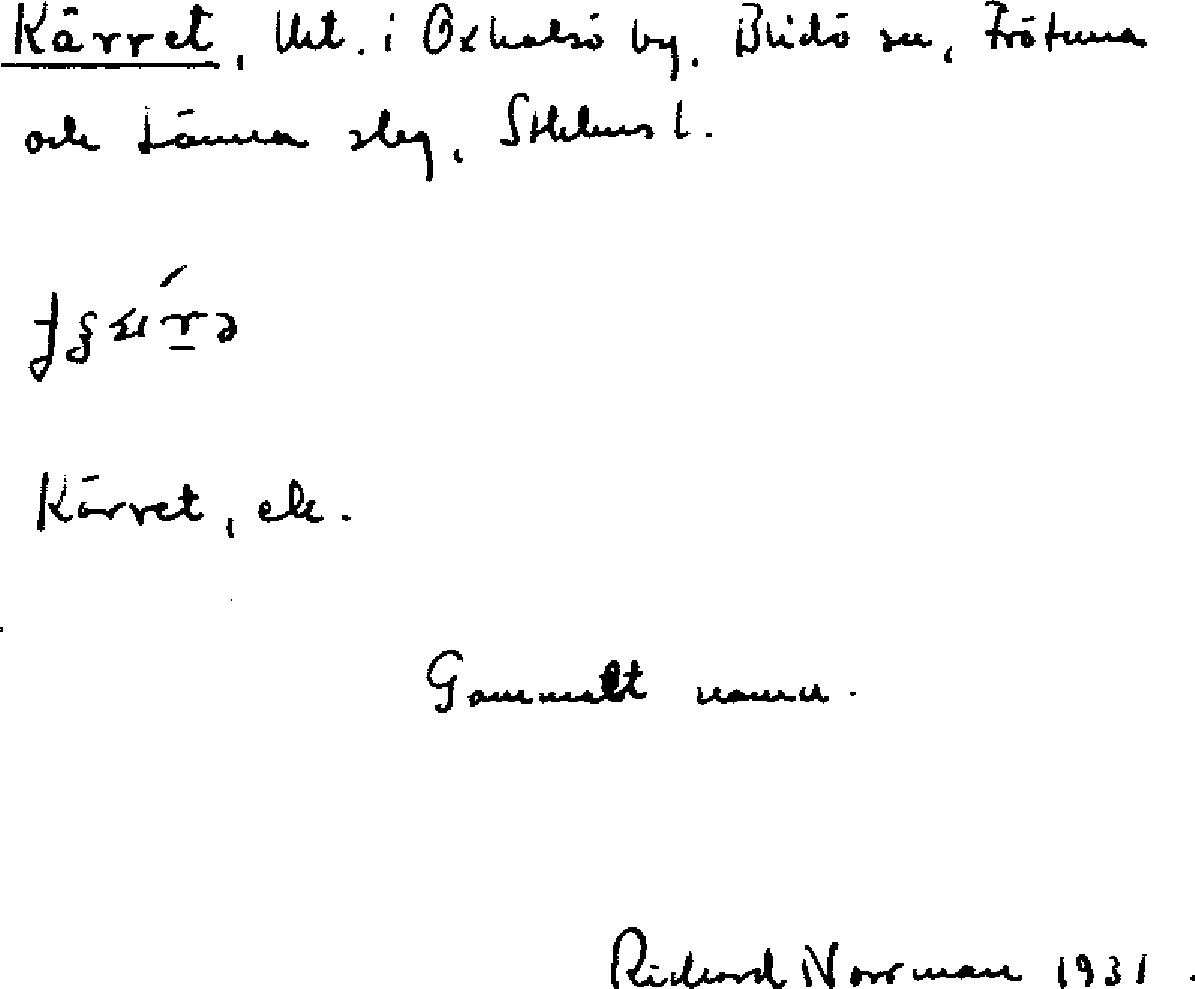 Kärret, lht. i Oxhalsö by, Blidö sn, Frötuna
och Länna slg, Sthlms l.
Kärret, ek.
Gammalt namn.
Richard Norrman 1931.